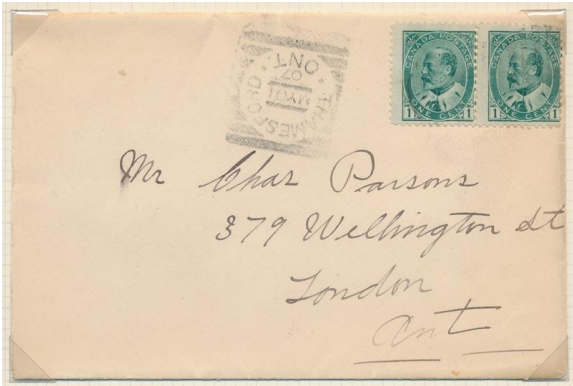 THAMESFORD ONT.
MY 01
07
CANADA POSTAGE
1 ONE CENT 1
CANADA POSTAGE
1 ONE CENT 1
Mr Chas Parsons
379 Wellington St
London
Ont